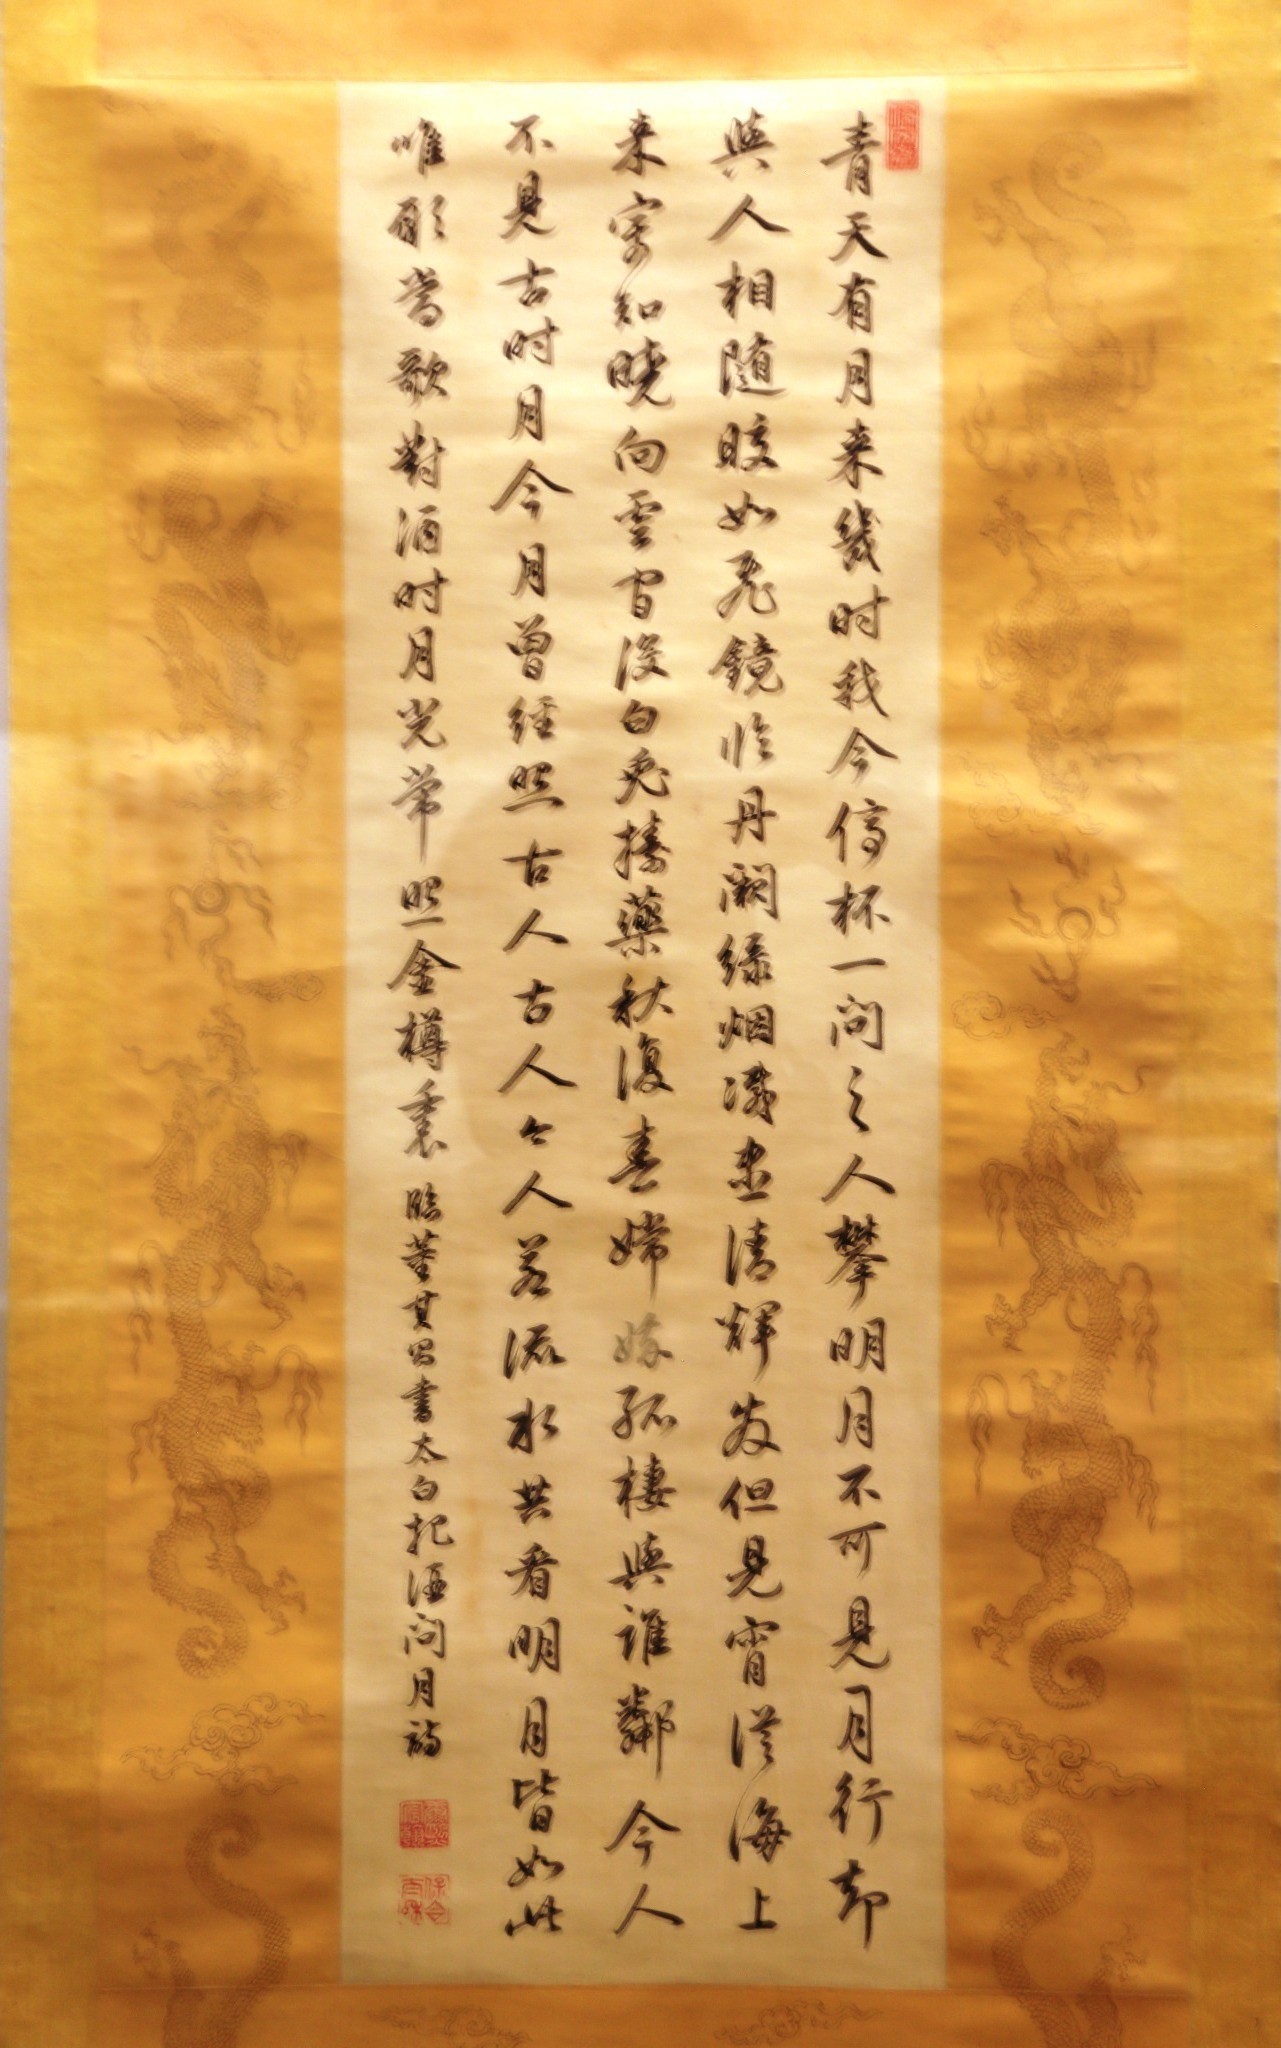 青天有月来幾时我今停杯一问之人攀明月不可見月行却
與人相随皎如飛鏡临丹闕绿烟滅盡清輝发但見宵從海上
来寧知曉向雲間没白兔擣藥秋復春嫦娥孤棲與誰鄰今人
不見古时月今月曾經照古人古人今人若流水共看明月皆如此
唯願當歌對酒时月光常照金樽裏 臨董其昌書太白把酒问月詩